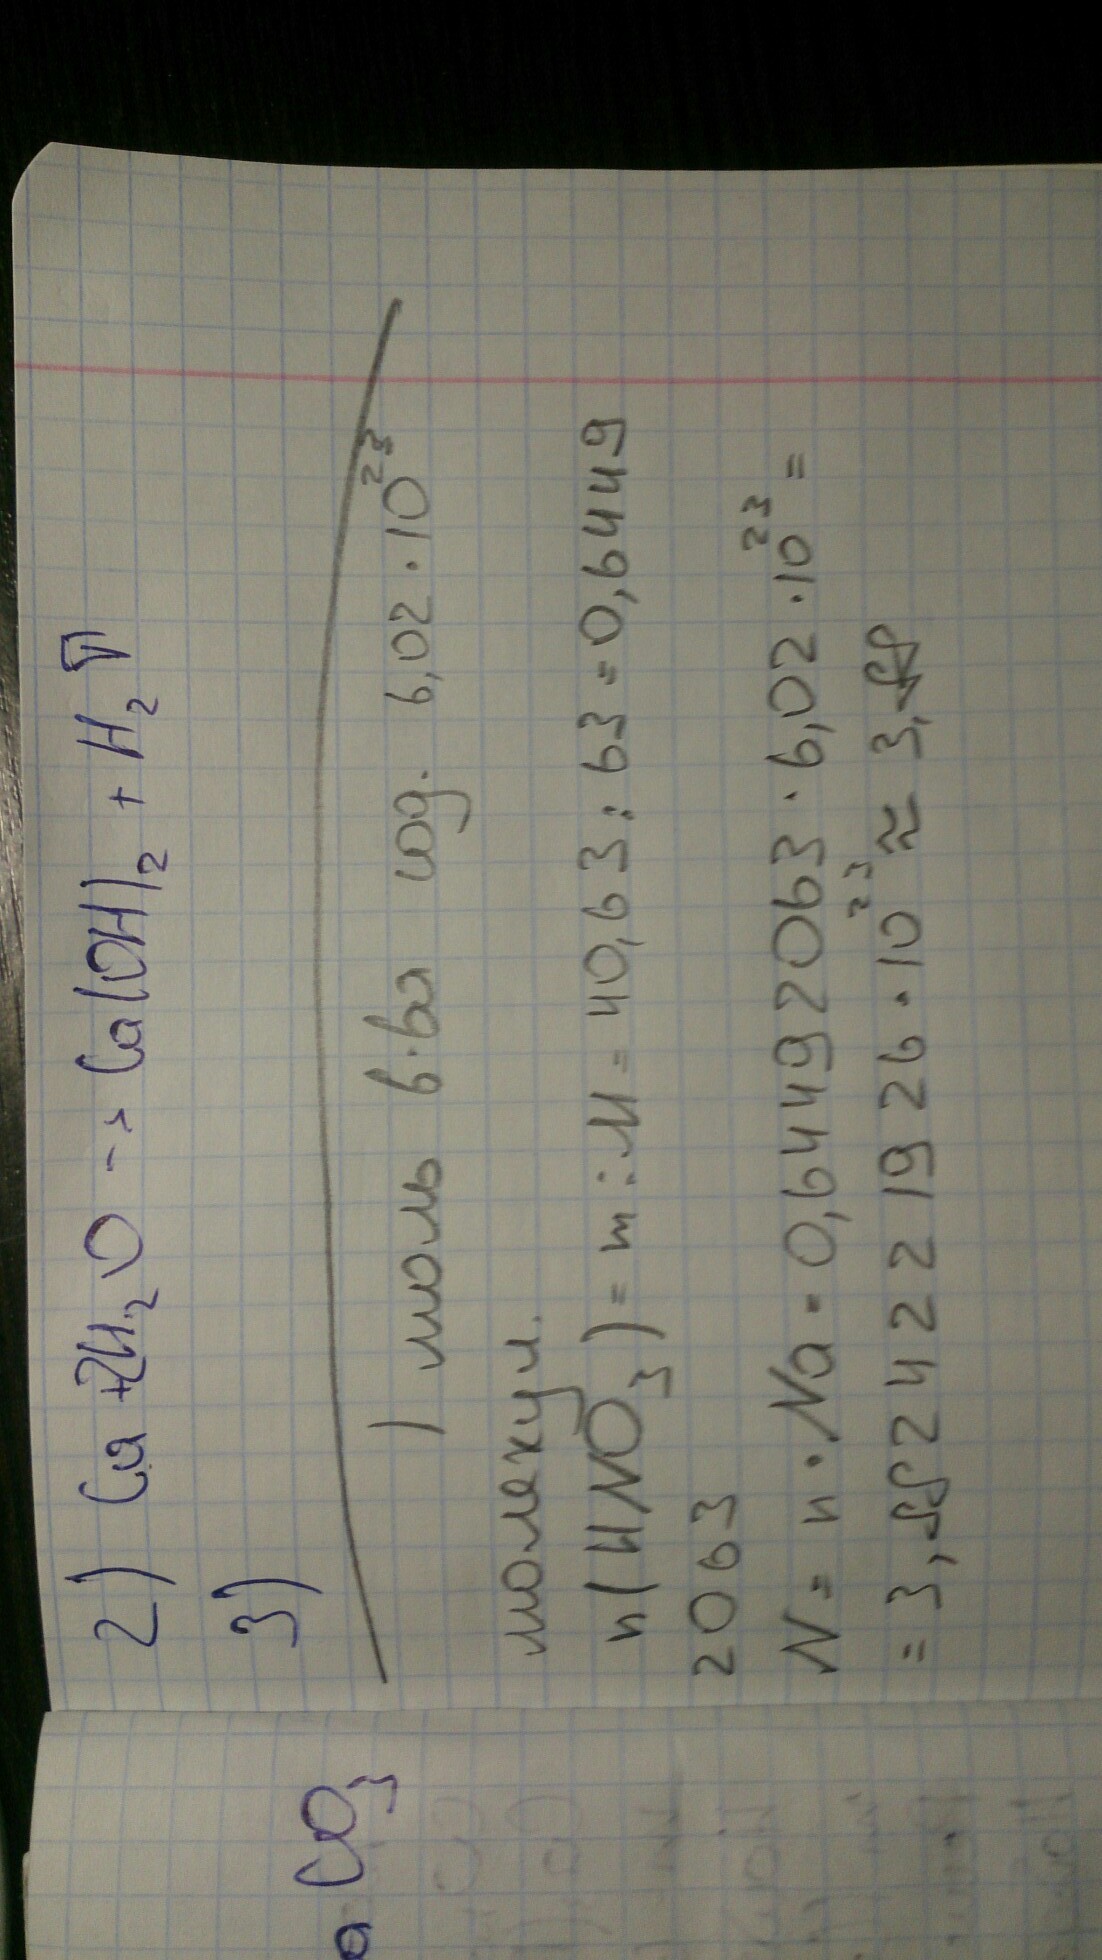 2) Ca + 2H₂O -> Ca(OH)₂ + H₂↑
3)
1 моль в-ва сод. 6,02 · 10²³
молекул.
n(HNO₃) = m : M = 40,63 : 63 = 0,6449
2063
N = n · Na = 0,64492063 · 6,02 · 10²³ =
= 3,882422 1926 · 10²³ ≈ 3,88
a CO₃